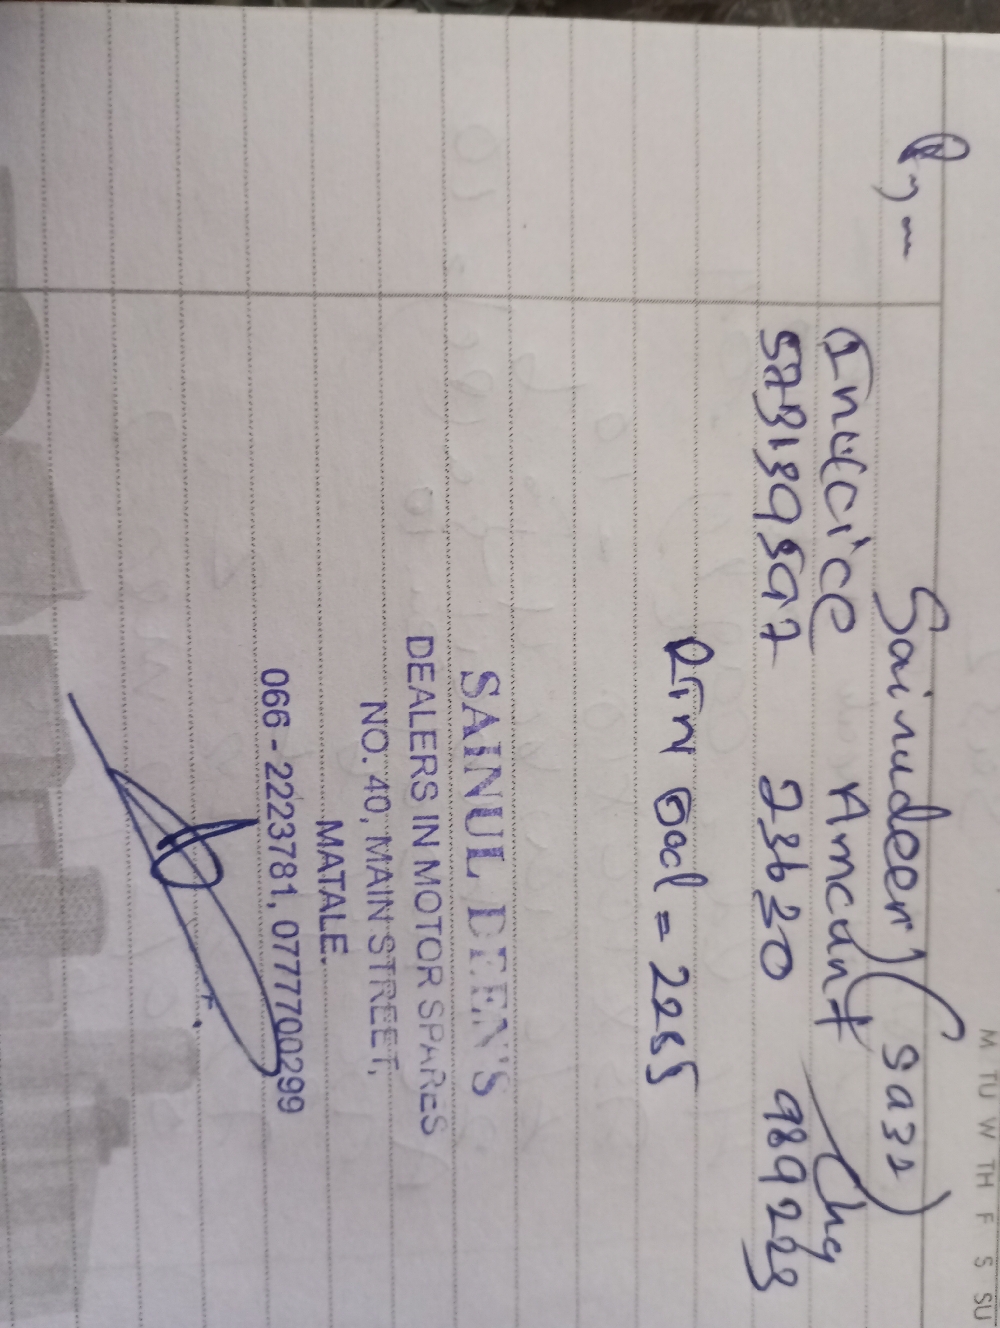 M TU W TH F S SU
Sainudeen (sa31)
Invoice Amount Chq
573139597 23630 989223
Din God = 2285
SAINUL DEEN'S
DEALERS IN MOTOR SPARES
NO. 40, MAIN STREET,
MATALE.
066 - 2223781, 0777700299